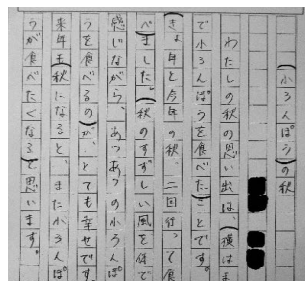 小ろんぽうの秋
わたしの秋の思い出は、横はま
で小ろんぽうを食べたことです。
きょ年と今年の秋、二回行って食
べました。秋のすずしい風を体で
感じながら、あつあつの小ろんぽ
うを食べるのが、とても幸せです。
来年も秋になると、また小ろんぽ
うが食べたくなると思います。